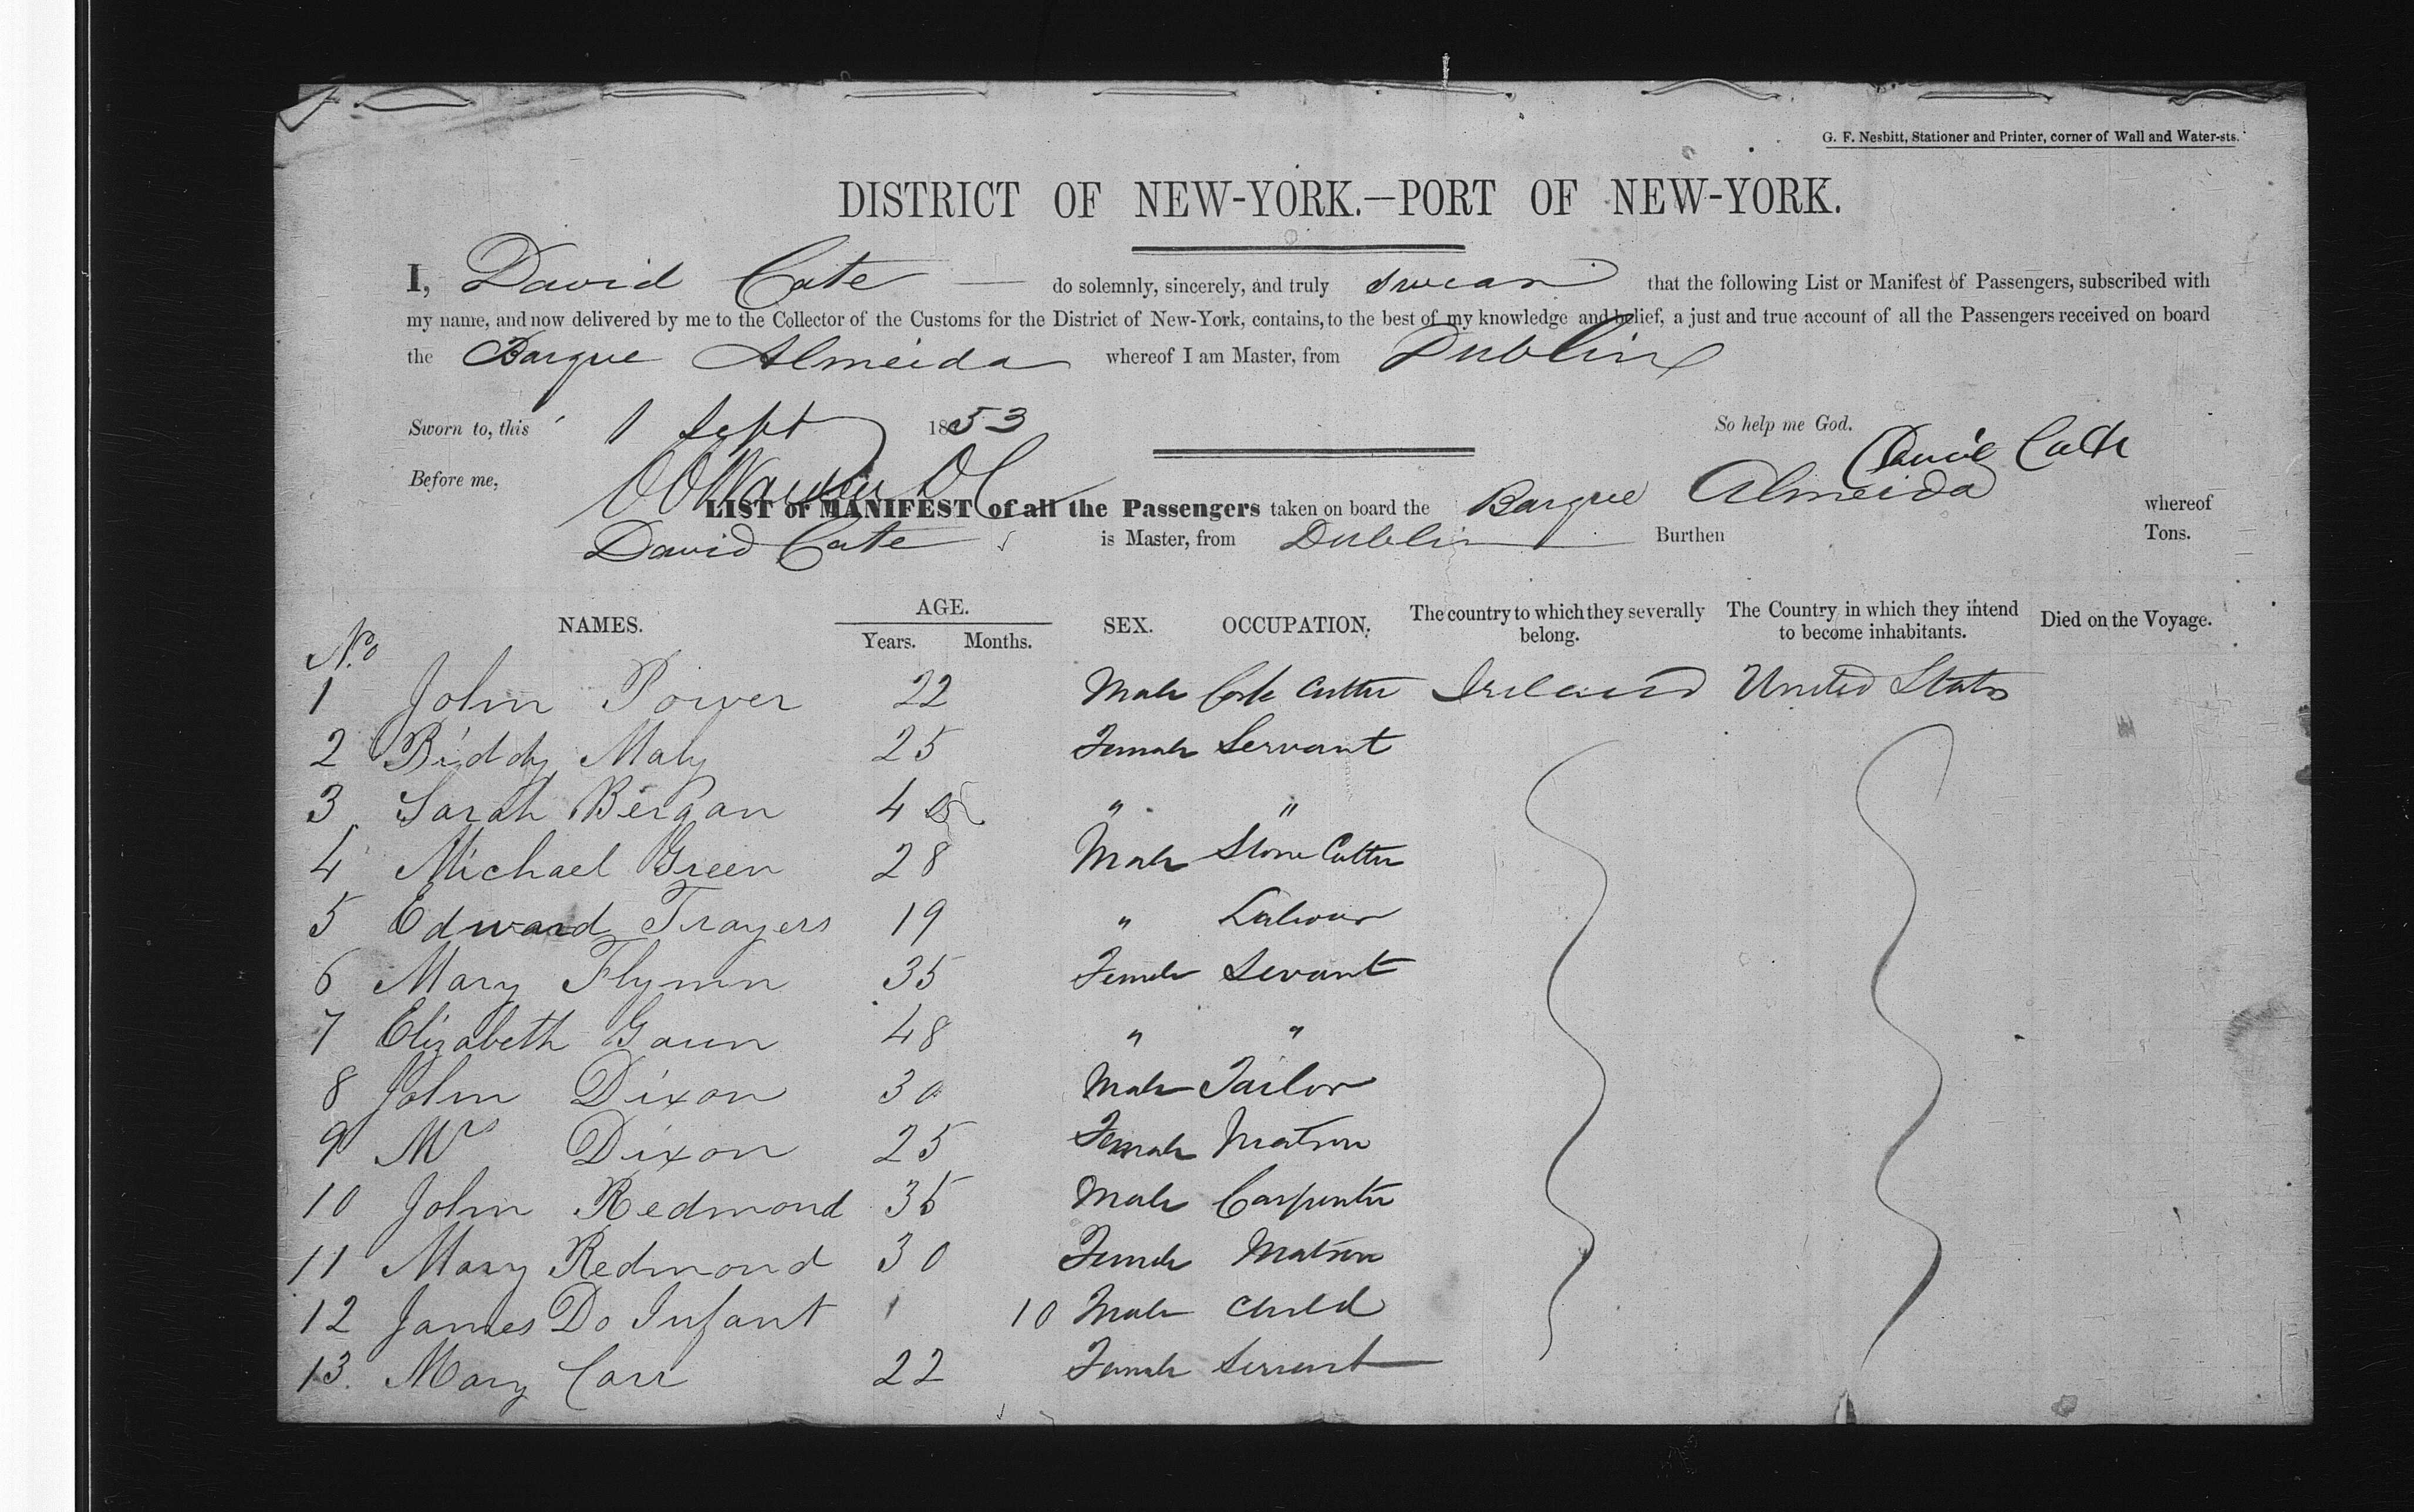 G. F. Nesbitt, Stationer and Printer, corner of Wall and Water-sts.
DISTRICT OF NEW-YORK.—PORT OF NEW-YORK.
I, David Cate do solemnly, sincerely, and truly swear that the following List or Manifest of Passengers, subscribed with
my name, and now delivered by me to the Collector of the Customs for the District of New-York, contains, to the best of my knowledge and belief, a just and true account of all the Passengers received on board
the Barque Almeida whereof I am Master, from Dublin
Sworn to, this 1 Sept 1853 So help me God.
Before me, David Cate
LIST or MANIFEST of all the Passengers taken on board the Barque Almeida whereof
David Cate is Master, from Dublin Burthen Tons.
No NAMES. AGE. Years. Months. SEX. OCCUPATION. The country to which they severally belong. The Country in which they intend to become inhabitants. Died on the Voyage.
1 John Power 22 Male Cork Cutter Ireland United States
2 Biddy Maly 25 Female Servant
3 Sarah Bergan 4 " "
4 Michael Green 28 Male Stone Cutter
5 Edward Trayers 19 " Labour
6 Mary Flynn 35 Female Servant
7 Elizabeth Gaun 48 " "
8 John Dixon 30 Male Tailor
9 Mrs Dixon 25 Female Matron
10 John Redmond 35 Male Carpenter
11 Mary Redmond 30 Female Matron
12 James Do Infant 1 10 Male Child
13 Mary Carr 22 Female Servant